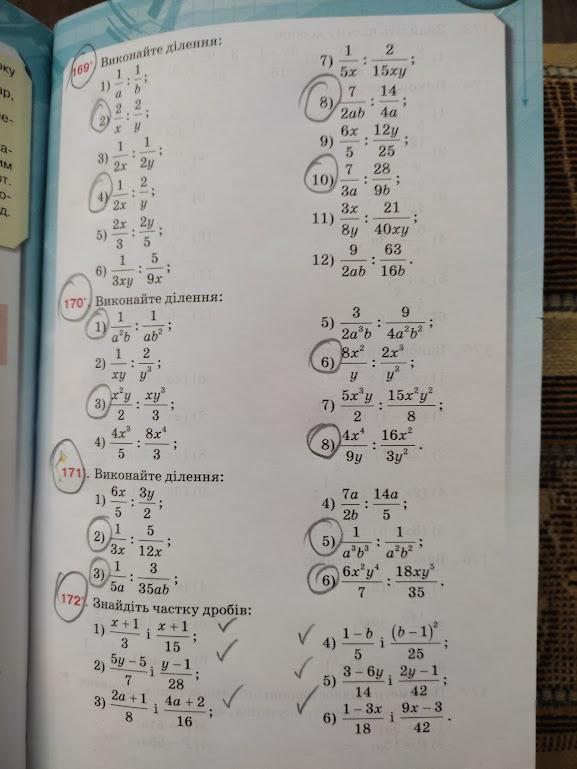 169°. Виконайте ділення:
1) 1/a : 1/b;
2) 2/x : 2/y;
3) 1/2x : 1/2y;
4) 1/2x : 2/y;
5) 2x/3 : 2y/5;
6) 1/3xy : 5/9x;
7) 1/5x : 2/15xy;
8) 7/2ab : 14/4a;
9) 6x/5 : 12y/25;
10) 7/3a : 28/9b;
11) 3x/8y : 21/40xy;
12) 9/2ab : 63/16b.
170°. Виконайте ділення:
1) 1/a²b : 1/ab²;
2) 1/xy : 2/y³;
3) x²y/2 : xy³/3;
4) 4x³/5 : 8x⁴/3;
5) 3/2a³b : 9/4a²b²;
6) 8x²/y : 2x³/y³;
7) 5x³y/2 : 15x²y²/8;
8) 4x⁴/9y : 16x²/3y².
171. Виконайте ділення:
1) 6x/5 : 3y/2;
2) 1/3x : 5/12x;
3) 1/5a : 3/35ab;
4) 7a/2b : 14a/5;
5) 1/a³b³ : 1/a²b²;
6) 6x²y⁴/7 : 18xy⁵/35.
172°. Знайдіть частку дробів:
1) x + 1/3 і x + 1/15;
2) 5y – 5/7 і y – 1/28;
3) 2a + 1/8 і 4a + 2/16;
4) 1 – b/5 і (b – 1)²/25;
5) 3 – 6y/14 і 2y – 1/42;
6) 1 – 3x/18 і 9x – 3/42.